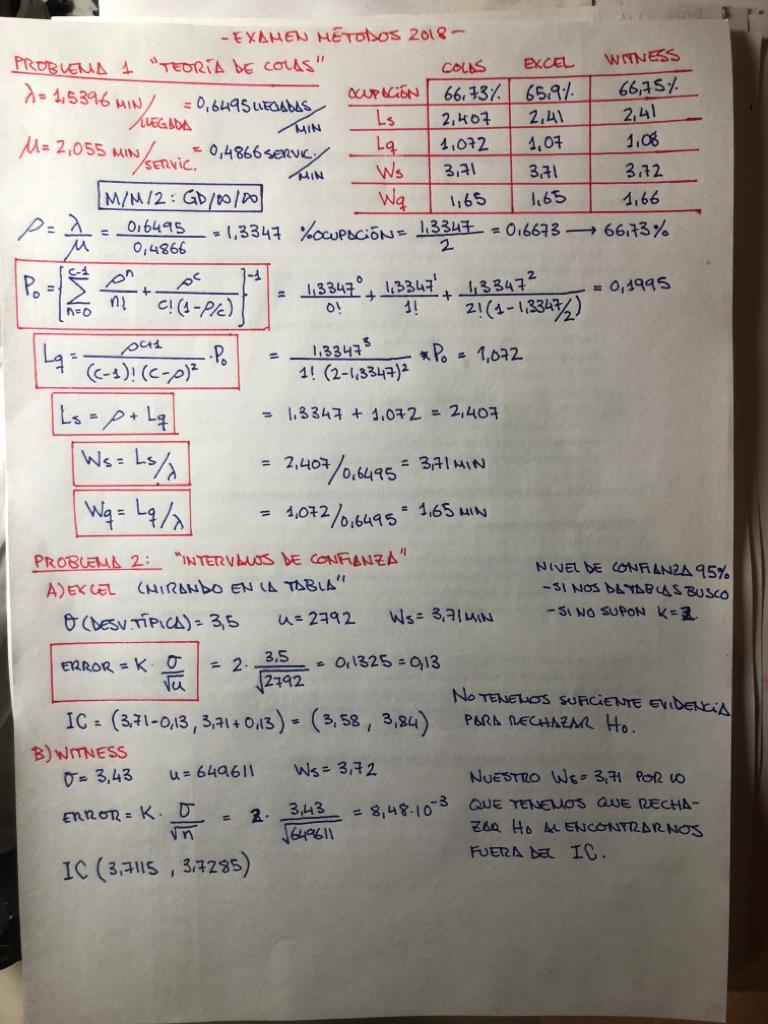 -EXAMEN MÉTODOS 2018-
PROBLEMA 1 "TEORÍA DE COLAS"
COLAS EXCEL WITNESS
OCUPACIÓN 66,73% 65,9% 66,75%
Ls 2,407 2,41 2,41
Lq 1,072 1,07 1,08
Ws 3,71 3,71 3,72
Wq 1,65 1,65 1,66
λ = 1,5396 MIN/LLEGADA = 0,6495 LLEGADAS/MIN
μ = 2,055 MIN/SERVIC. = 0,4866 SERVIC./MIN
M/M/2: GD/∞/∞
ρ = λ/μ = 0,6495/0,4866 = 1,3347 %OCUPACIÓN = 1,3347/2 = 0,6673 → 66,73%
P₀ = {∑_{n=0}^{c-1} ρⁿ/n! + ρᶜ/(c!(1-ρ/c))}⁻¹ = 1,3347⁰/0! + 1,3347¹/1! + 1,3347²/(2!(1-1,3347/2)) = 0,1995
Lq = ρᶜ⁺¹/((c-1)!(c-ρ)²) · P₀ = 1,3347³/(1!(2-1,3347)²) * P₀ = 1,072
Ls = ρ + Lq = 1,3347 + 1,072 = 2,407
Ws = Ls/λ = 2,407/0,6495 = 3,71 MIN
Wq = Lq/λ = 1,072/0,6495 = 1,65 MIN
PROBLEMA 2: "INTERVALOS DE CONFIANZA"
A) EXCEL (MIRANDO EN LA TABLA"
NIVEL DE CONFIANZA 95%
-SI NOS DA TABLAS BUSCO
-SI NO SUPON K=2
σ (DESV.TÍPICA) = 3,5 u = 2792 Ws = 3,71 MIN
ERROR = K · σ/√u = 2 · 3,5/√2792 = 0,1325 = 0,13
IC = (3,71-0,13, 3,71+0,13) = (3,58, 3,84)
NO TENEMOS SUFICIENTE EVIDENCIA
PARA RECHAZAR H₀.
B) WITNESS
σ = 3,43 u = 649611 Ws = 3,72
ERROR = K · σ/√n = 2 · 3,43/√649611 = 8,48·10⁻³
IC (3,7115, 3,7285)
NUESTRO Ws = 3,71 POR LO
QUE TENEMOS QUE RECHA-
ZAR H₀ AL ENCONTRARNOS
FUERA DEL IC.